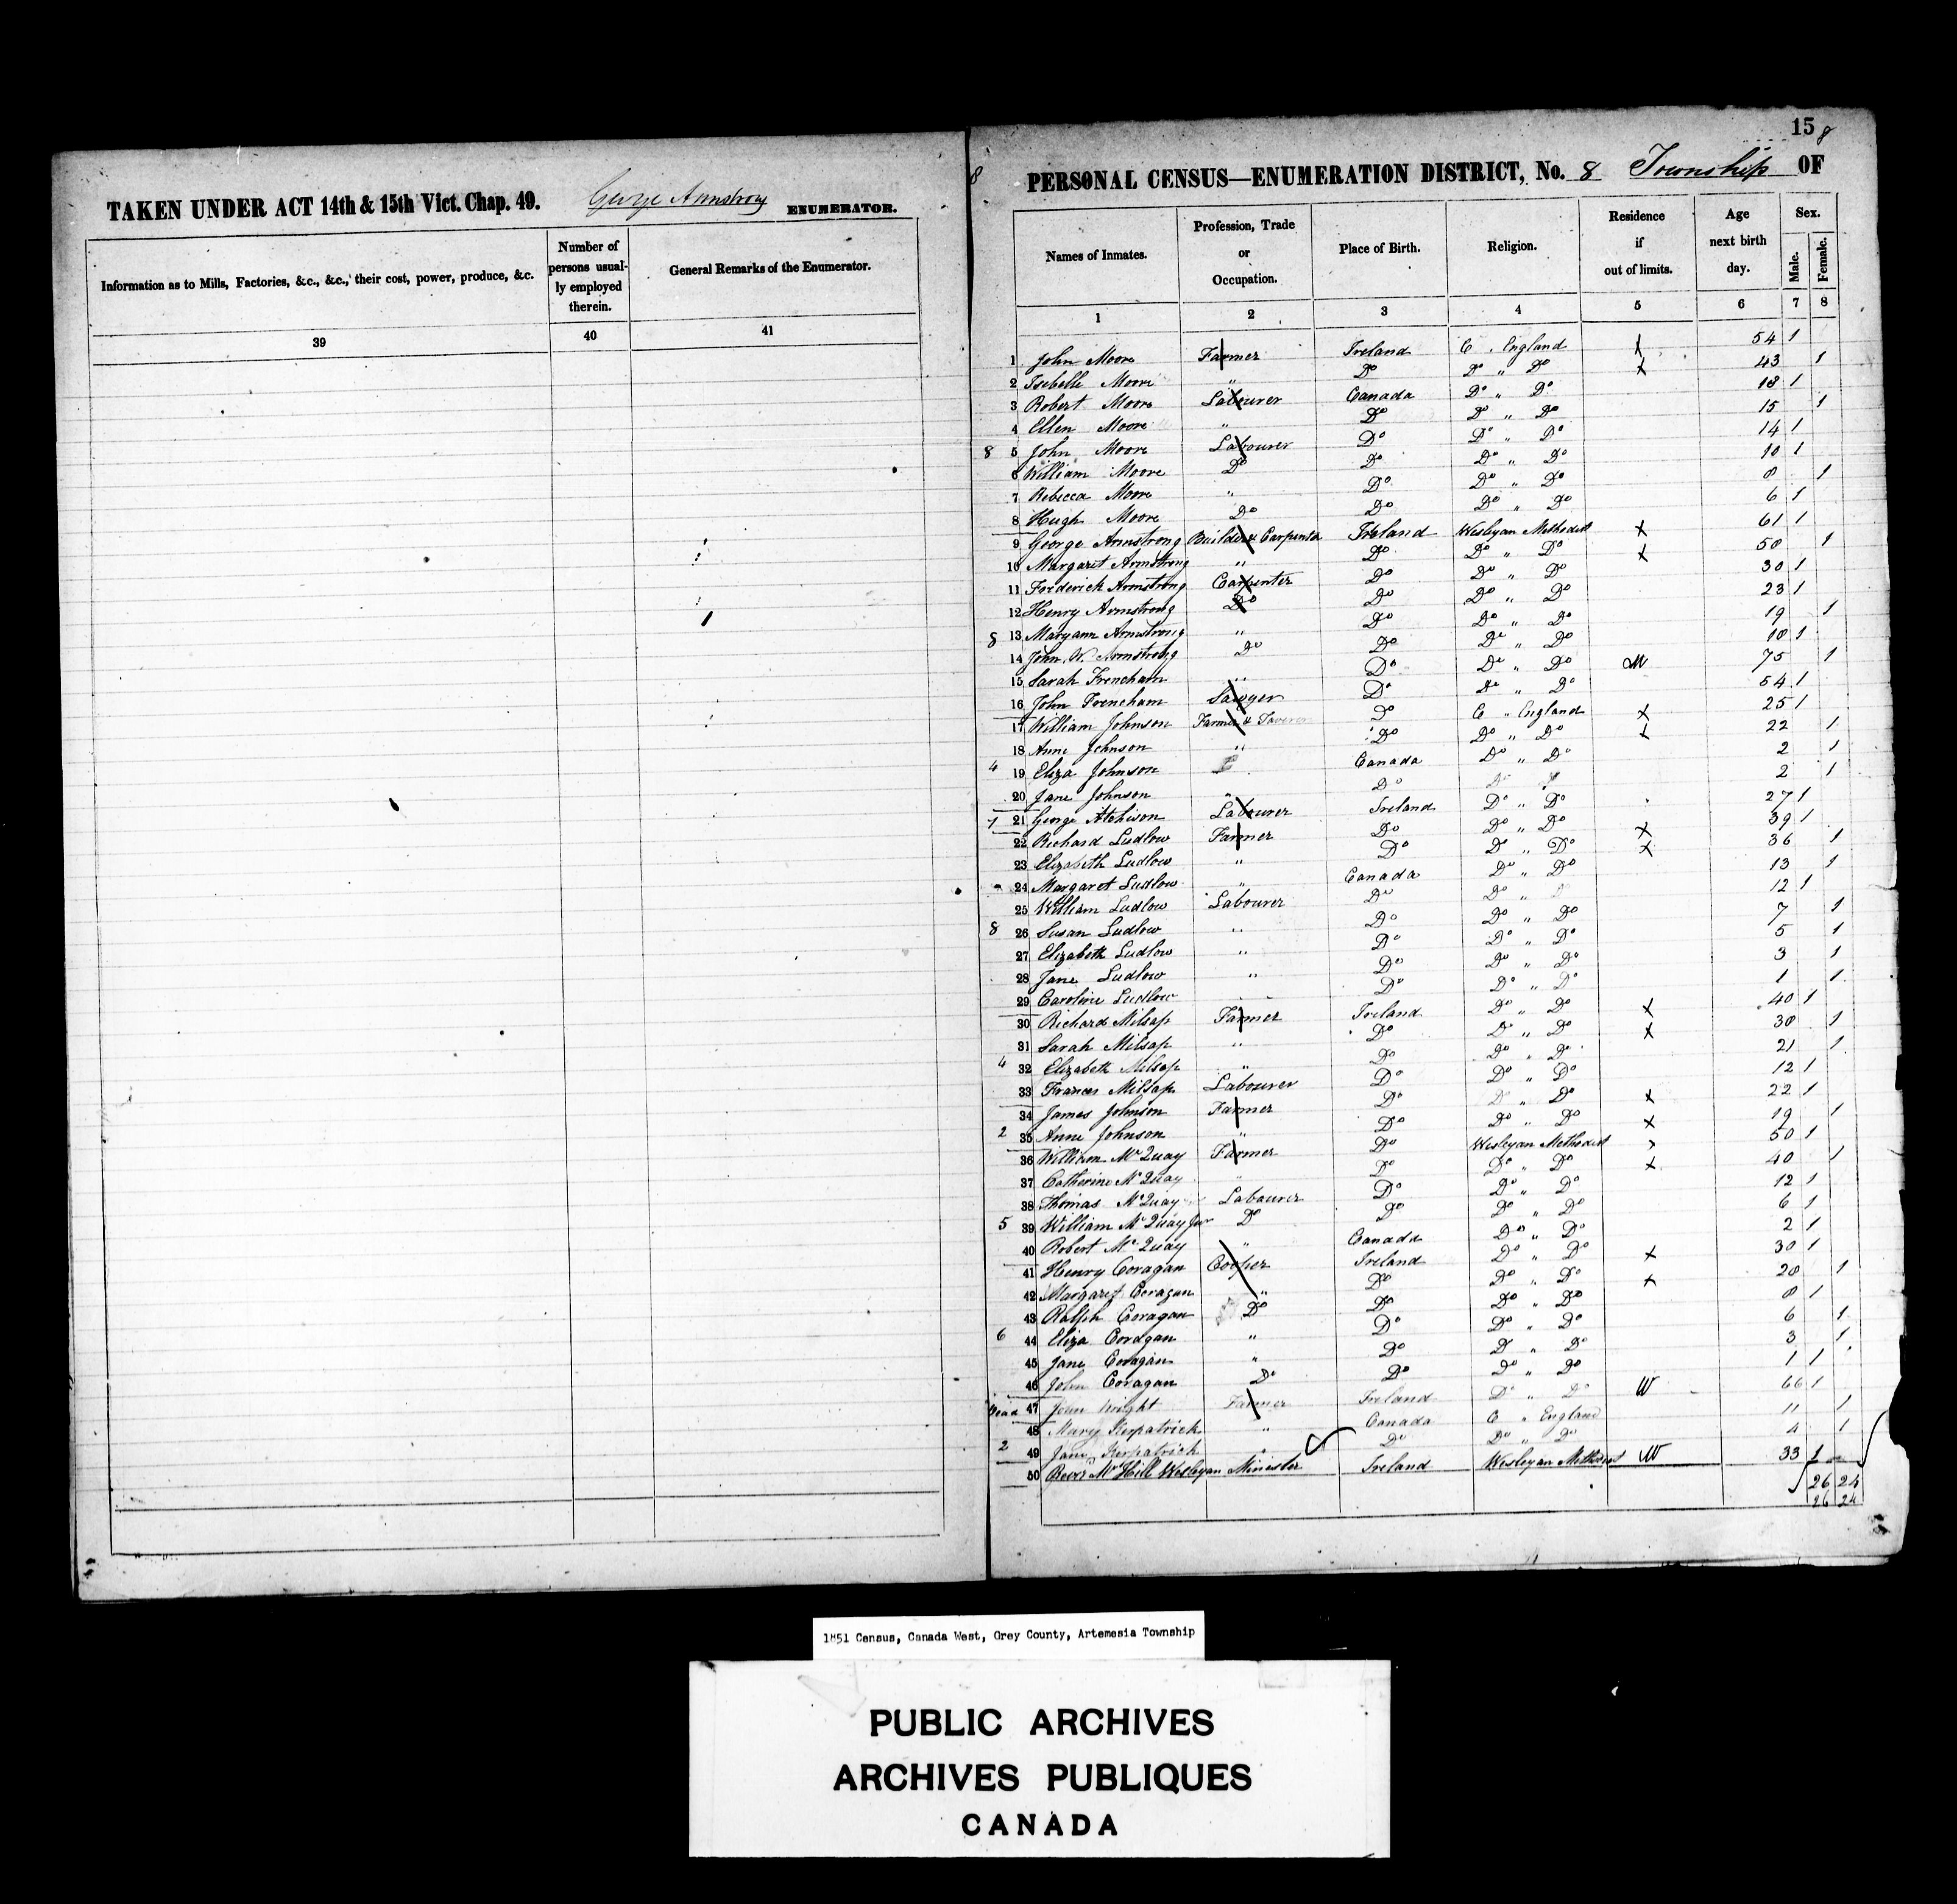 TAKEN UNDER ACT 14th & 15th Vict. Chap. 49. George Armstrong ENUMERATOR.
Information as to Mills, Factories, &c., &c., their cost, power, produce, &c.
Number of persons usual-
ly employed
therein.
General Remarks of the Enumerator.
39 40 41
15 8
8 PERSONAL CENSUS—ENUMERATION DISTRICT, No. 8 Township OF
Names of Inmates. Profession, Trade or Occupation. Place of Birth. Religion. Residence if out of limits. Age next birth day. Sex. Male. Female.
1 2 3 4 5 6 7 8
1 John Moore Farmer Ireland C. England X 54 1
2 Isabelle Moore " Do Do " Do X 43 1
3 Robert Moore Labourer Canada Do " Do 18 1
4 Ellen Moore " Do Do " Do 15 1
8 5 John Moore Labourer Do Do " Do 14 1
6 William Moore Do Do Do " Do 10 1
7 Rebecca Moore " Do Do " Do 8 1
8 Hugh Moore Do Do Do " Do 6 1
9 George Armstrong Builder & Carpenter Ireland Wesleyan Methodist X 61 1
10 Margaret Armstrong " Do Do " Do X 50 1
11 Frederick Armstrong Carpenter Do Do " Do 30 1
12 Henry Armstrong Do Do Do " Do 23 1
8 13 Maryann Armstrong " Do Do " Do 19 1
14 John W. Armstrong Do Do Do " Do 18 1
15 Sarah Trencham " Do Do " Do W 75 1
16 John Trencham Sawyer Do Do " Do 54 1
17 William Johnson Farmer & Do C " England X 25 1
18 Anne Johnson " Do Do " Do X 22 1
4 19 Eliza Johnson Canada Do " Do 2 1
20 Jane Johnson " Do Do 2 1
1 21 George Atchison Labourer Ireland Do " Do 27 1
22 Richard Ludlow Farmer Do Do " Do X 39 1
23 Elizabeth Ludlow " Do Do " Do X 36 1
24 Margaret Ludlow " Canada Do " Do 13 1
25 William Ludlow Labourer Do Do " 12 1
8 26 Susan Ludlow " Do Do " Do 7 1
27 Elizabeth Ludlow " Do Do " Do 5 1
28 Jane Ludlow " Do Do " Do 3 1
29 Caroline Ludlow Do Do " Do 1 1
30 Richard Milsap Farmer Ireland Do " Do X 40 1
31 Sarah Milsap " Do Do " Do X 30 1
4 32 Elizabeth Milsap " Do Do " Do 21 1
33 Frances Milsap Labourer Do Do " Do 12 1
34 James Johnson Farmer Do Do " Do X 22 1
2 35 Anne Johnson " Do Do " Do X 19 1
36 William McQuay Farmer Do Wesleyan Methodist X 50 1
37 Catherine McQuay Do Do " Do X 40 1
38 Thomas McQuay Labourer Do Do " Do 12 1
5 39 William McQuay Jur Do Do Do " Do 6 1
40 Robert McQuay " Canada Do " Do 2 1
41 Henry Coragan Cooper Ireland Do " Do X 30 1
42 Margaret Coragan " Do Do " Do X 28 1
43 Ralph Coragan Do Do Do " Do 8 1
6 44 Eliza Coragan " Do Do " Do 6 1
45 Jane Coragan " Do Do " Do 3 1
46 John Coragan Do Do Do " Do 1 1
Dead 47 John Wright Farmer Ireland Do " Do W 66 1
48 Mary Kirpatrick " Canada C " England 11 1
2 49 Jane Kirpatrick " Do Do " Do 4 1
50 Mr Hill Wesleyan Minister Ireland Wesleyan Methodist W 33 1
26 24
26 24
1851 Census, Canada West, Grey County, Artemesia Township
PUBLIC ARCHIVES
ARCHIVES PUBLIQUES
CANADA